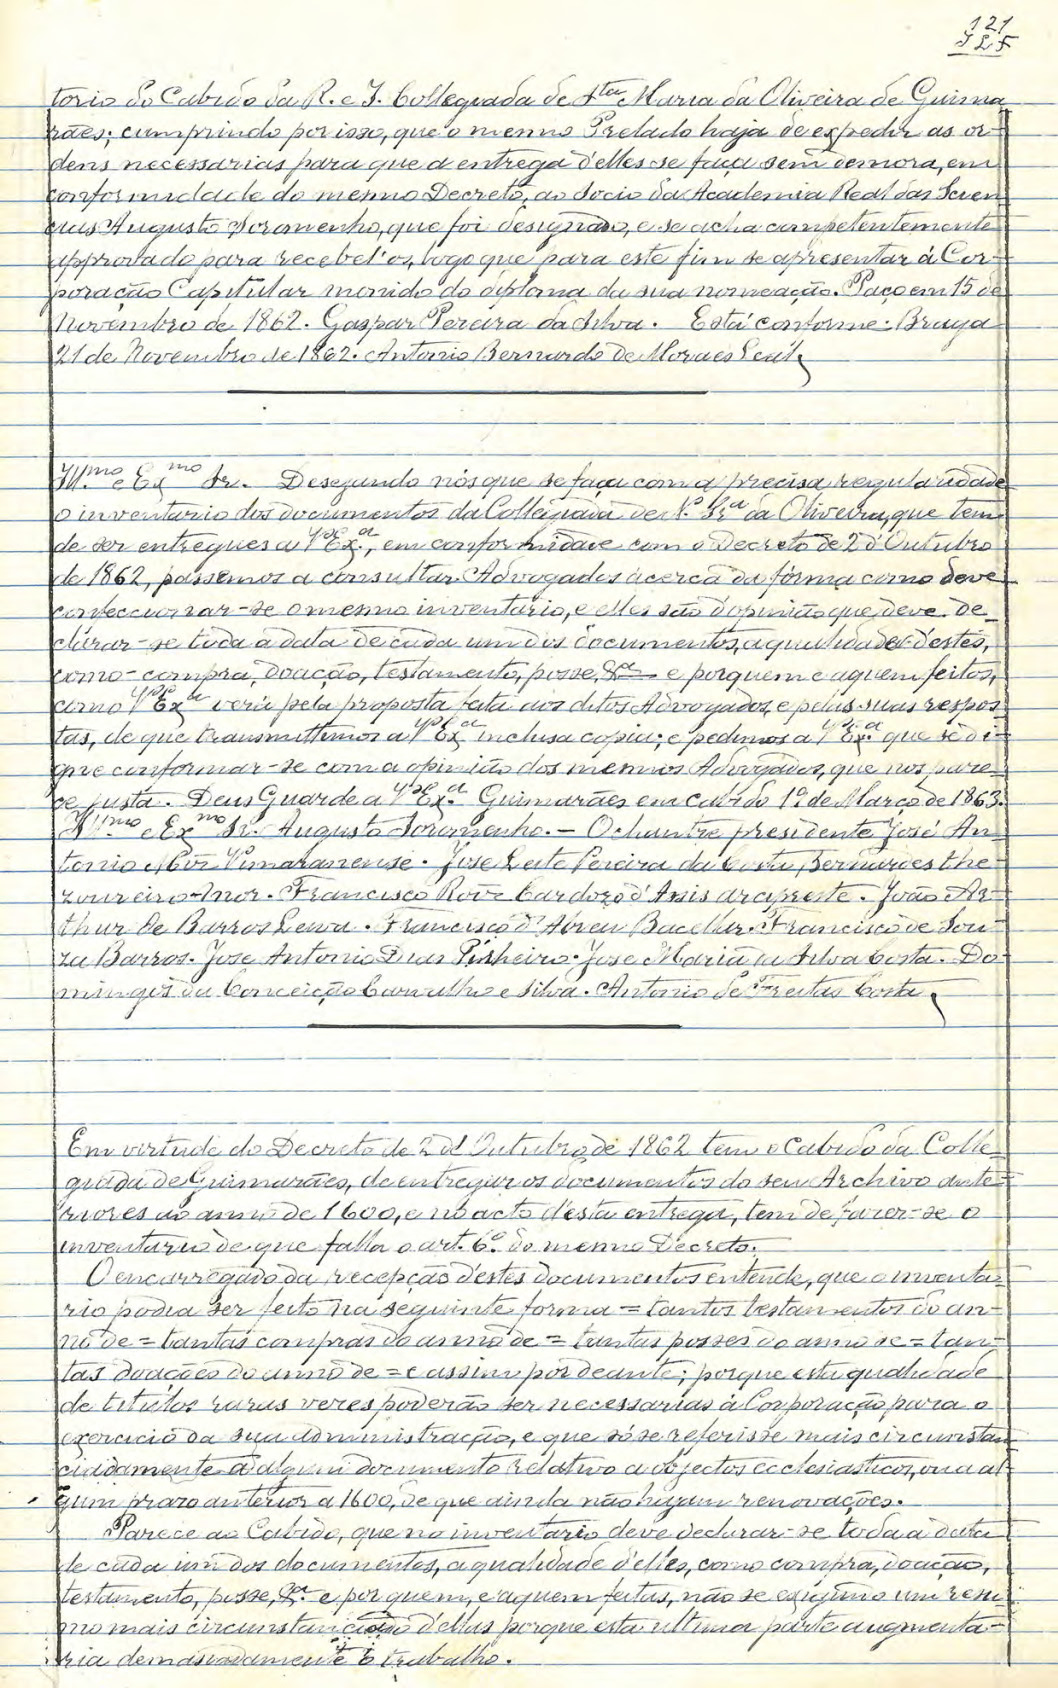 121
torio do Cabido da R. e I. Collegiada de Sta Maria da Oliveira de Guima
rães; cumprindo por isso, que o mesmo Prelado haja de expedir as or-
dens necessarias para que a entrega d'elles se faça sem demora, em
conformidade do mesmo Decreto, ao Socio da Academia Real das Scien
cias Augusto Soromenho, que foi designado, e se acha competentemente
approvado para recebel'os, logo que para este fim se apresentar á Cor-
poração Capitular monido do diploma da sua nomeação. Paço em 15 de
Novembro de 1862. Gaspar Pereira da Silva. Está conforme. Braga
21 de Novembro de 1862. Antonio Bernardo de Moraes Leal
Ill.mo e Ex.mo Sr. Desejando nós que se faça com a precisa regularidade
o inventario dos documentos da Collegiada de N.ª Sr.ª da Oliveira, que tem
de ser entregues a V.ª Ex.ª, em conformidade com o Decreto de 2 d'Outubro
de 1862, passemos a consultar Advogados ácerca da fórma como deve
confeccionar-se o mesmo inventário, e elles são d'opinião que deve de-
clarar-se toda a data de cada um dos documentos, a qualidade destes,
como - compra, doação, testamento, posse, &.ª - e por quem e a quem feitos,
como V.ª Ex.ª verá pela proposta feita aos ditos Advogados, e pelas suas respos
tas, de que transmittimos a V.ª Ex.ª inclusa copia; e pedimos a V.ª Ex.ª que se di-
gne conformar-se com a opinião dos mesmos Advogados, que nos pare-
ce justa. Deus Guarde a V.ª Ex.ª Guimarães em cabido 1.º de Março de 1863.
Ill.mo e Ex.mo Sr. Augusto Soromenho. - O chantre presidente José An
tonio Vimaranense. José Leite Pereira da Costa, Bernardes the-
zoureiro-mor. Francisco Roiz Cardozo d'Assis arcipreste. João Ar-
thur de Barros Leiva. Francisco d'Abreu Bacellar. Francisco de Sou-
za Barros. Jose Antonio Dias Pinheiro. Jose Maria da Silva Costa. Do-
mingos da Conceição Carvalho e Silva. Antonio de Freitas Costa
Em virtude do Decreto de 2 d'Outubro de 1862 tem o Cabido da Colle-
giada de Guimarães, de entregar os documentos do seu Archivo ante-
riores ao anno de 1600, e no acto d'esta entrega, tem de fazer-se o
inventario de que falla o art. 6.º do mesmo Decreto.
O encarregado da recepção d'estes documentos entende, que o inventa-
rio podia ser feito na seguinte forma = tantos testamentos do an-
no de = tantas compras do anno de = tantas posses do anno de = tan-
tas doações do anno de = e assim por deante; porque esta qualidade
de titulos raras veses poderão ser necessarias á Corporação para o
exercicio da sua administração, e que só se referisse mais circumstan
ciadamente a algum documento relativo a objectos ecclesiasticos, ou a al-
gum prazo anterior a 1600, de que ainda não hajam renovações.
Parece ao Cabido, que no inventário deve declarar-se toda a data
de cada um dos documentos, a qualidade d'elles, como compra, doação,
testamento, posse, &.ª e por quem, e a quem feitas, não se exigindo um resu
mo mais circumstanciado d'ellas porque esta ultima parte augmenta-
ria demasiadamente o trabalho.